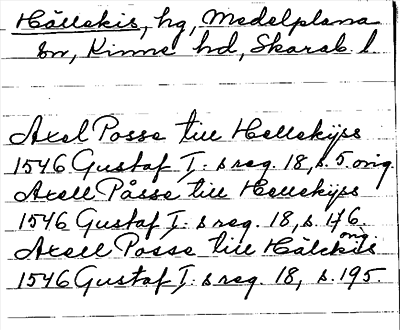 Hällekis, hg, Medelplana
sn, Kinne hd, Skarab. l
Axel Posse till Hellekijss
1546 Gustaf I:s reg. 18, s. 5. orig.
Axell Påsse till Hellekijss
1546 Gustaf I:s reg. 18, s. 176.
orig.
Axell Posse till Hälekiis
1546 Gustaf I:s reg. 18, s. 195.